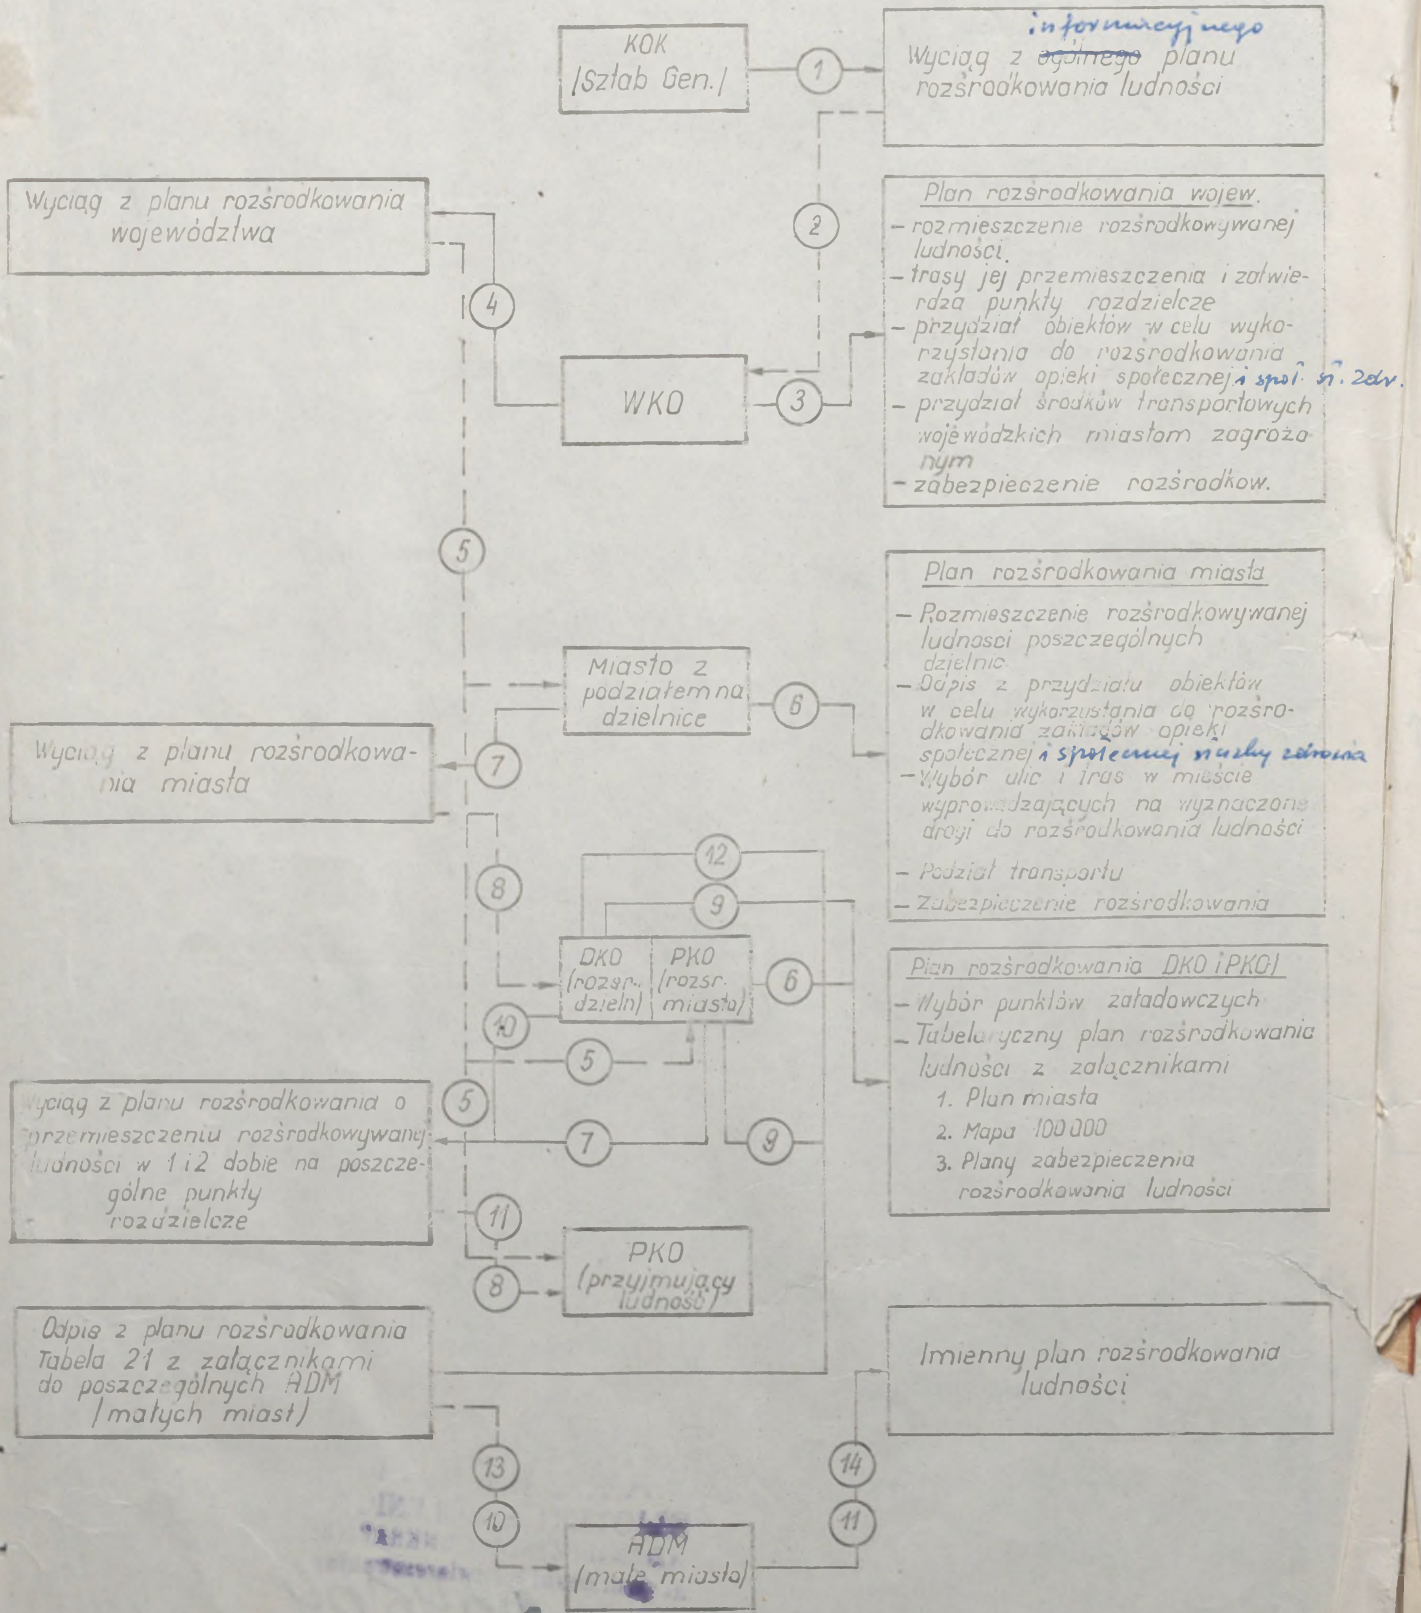 KOK
/Sztab Gen./
1
informacyjnego
Wyciąg z ogólnego planu
rozśrodkowania ludności
2
Wyciąg z planu rozśrodkowania
województwa
4
WKO
3
Plan rozśrodkowania wojew.
- rozmieszczenie rozśrodkowywanej
ludności.
- trasy jej przemieszczenia i zatwie-
rdza punkty rozdzielcze
- przydział obiektów w celu wyko-
rzystania do rozśrodkowania
zakładów opieki społecznej i społ. sł. zdr.
- przydział środków transportowych
wojewódzkich miastom zagrożo
nym
- zabezpieczenie rozśrodkow.
5
Miasto z
podziałem na
dzielnice
6
Plan rozśrodkowania miasta
- Rozmieszczenie rozśrodkowywanej
ludności poszczególnych
dzielnic
- Odpis z przydziału obiektów
w celu wykorzystania do rozśro-
dkowania zakładów opieki
społecznej i społecznej służby zdrowia
- Wybór ulic i tras w mieście
wyprowadzających na wyznaczone
drogi do rozśrodkowania ludności
- Podział transportu
- Zabezpieczenie rozśrodkowania
Wyciąg z planu rozśrodkowa-
nia miasta
7
8
12
9
DKO
(rozśr.
dzieln)
PKO
(rozśr.
miasta)
6
10
5
Plan rozśrodkowania DKO i PKO)
- Wybór punktów załadowczych
- Tabelaryczny plan rozśrodkowania
ludności z załącznikami
1. Plan miasta
2. Mapa 100 000
3. Plany zabezpieczenia
rozśrodkowania ludności
Wyciąg z planu rozśrodkowania o
przemieszczeniu rozśrodkowywanej
ludności w 1 i 2 dobie na poszcze-
gólne punkty
rozdzielcze
5
7
9
11
8
PKO
(przyjmujący
ludność)
Odpis z planu rozśrodkowania
Tabela 21 z załącznikami
do poszczególnych ADM
/małych miast/
Imienny plan rozśrodkowania
ludności
13
10
14
11
ADM
(małe miasta)